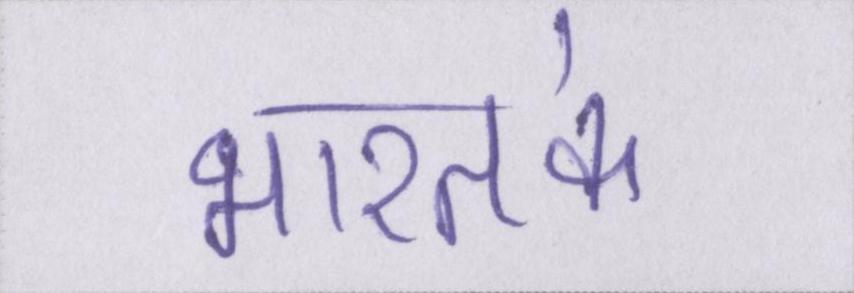 भारतके